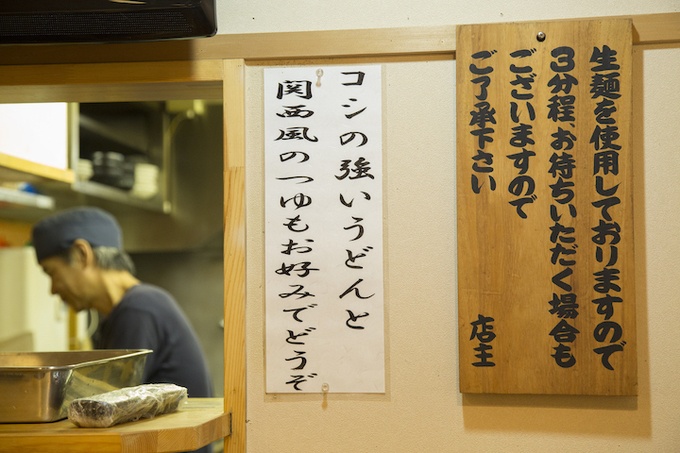 生麺を使用しておりますので
3分程 お待ちいただく場合も
ございますので
ご了承下さい
店主
コシの強いうどんと
関西風のつゆもお好みでどうぞ